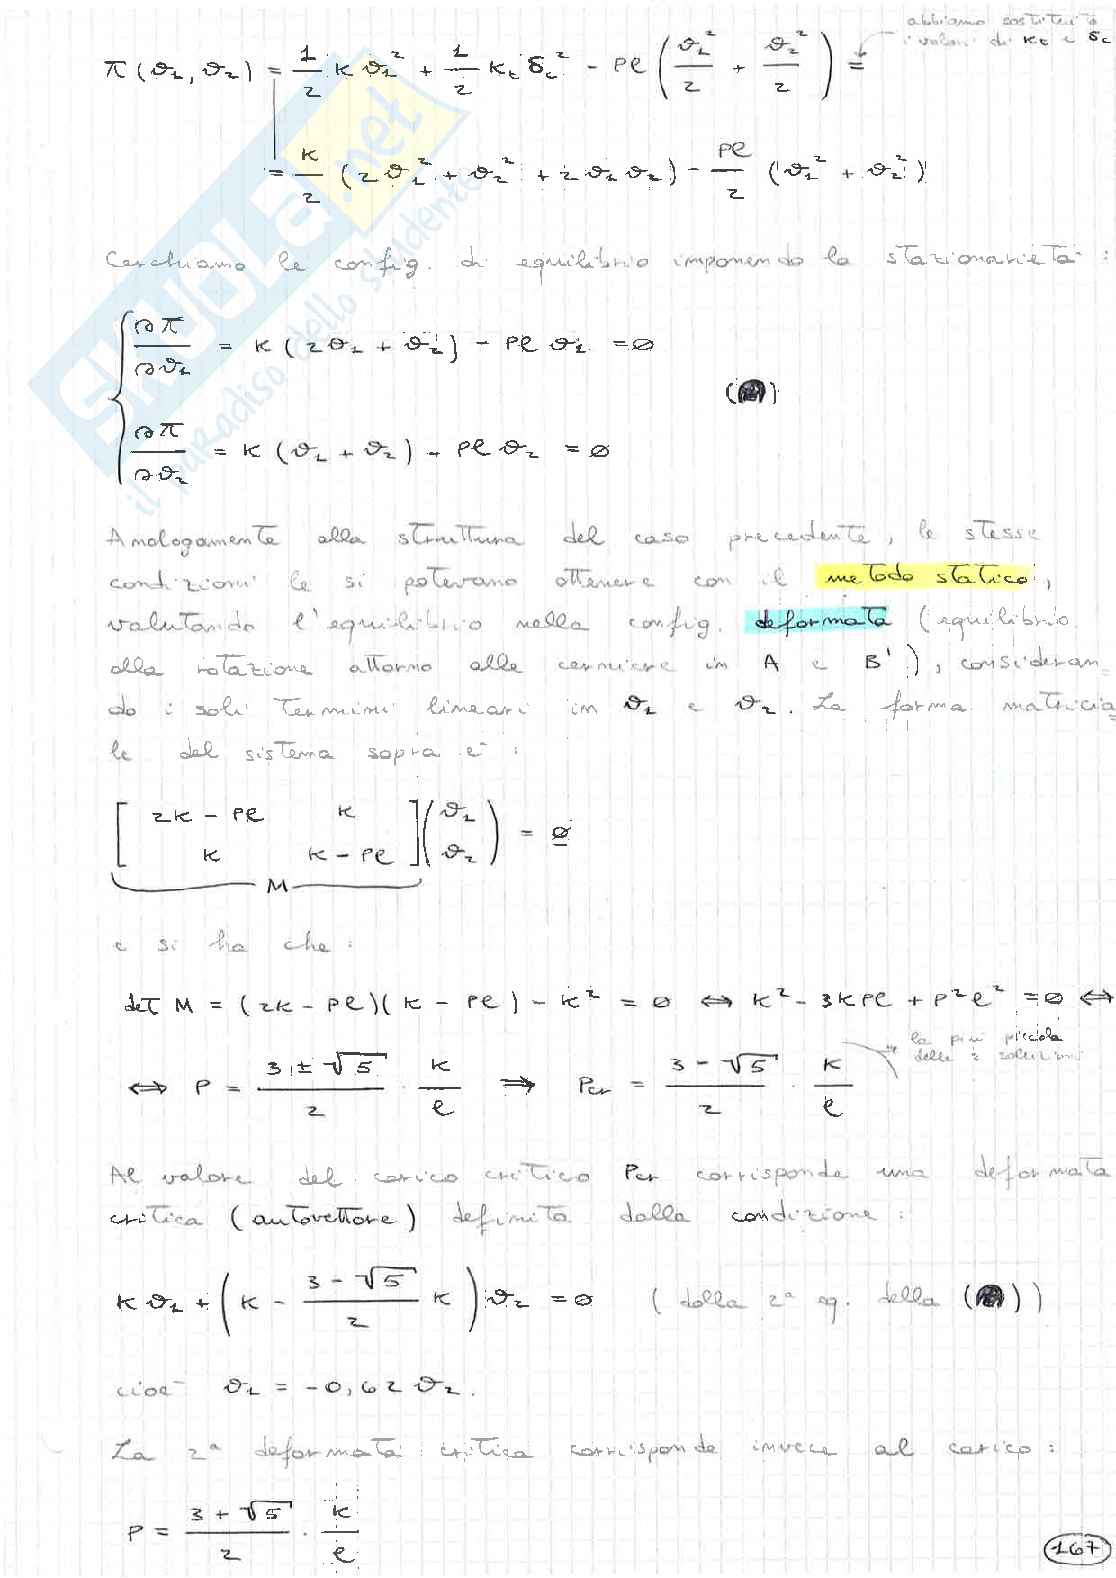 abbiamo sostituito
i valori di Kt e δc
π(ϑ1, ϑ2) = 1/2 K ϑ1² + 1/2 Kt δc² - Pl (ϑ1²/2 + ϑ2²/2) =
= K/2 (2ϑ1² + ϑ2² + 2ϑ1ϑ2) - Pl/2 (ϑ1² + ϑ2²)
Cerchiamo le config. di equilibrio imponendo la stazionarietà:
∂π/∂ϑ1 = K(2ϑ1 + ϑ2) - Pl ϑ1 = ∅
(●)
∂π/∂ϑ2 = K(ϑ1 + ϑ2) - Pl ϑ2 = ∅
Analogamente alla struttura del caso precedente, le stesse
condizioni le si potevano ottenere con il metodo statico,
valutando l'equilibrio nella config. deformata (equilibrio
alla rotazione attorno alle cerniere in A e B'), consideran_
do i soli termini lineari in ϑ1 e ϑ2. La forma matricia_
le del sistema sopra è:
[2K - Pl K] (ϑ1)
[K K - Pl] (ϑ2) = ∅
M
e si ha che:
det M = (2K - Pl)(K - Pl) - K² = ∅ ⇔ K² - 3KPl + P²l² = ∅ ⇔
la più piccola
delle 2 soluzioni
⇔ P = (3 ± √5)/2 · K/l ⇒ Pcr = (3 - √5)/2 · K/l
Al valore del carico critico Pcr corrisponde una deformata
critica (autovettore) definita dalla condizione:
K ϑ1 + (K - (3 - √5)/2 K) ϑ2 = ∅ (dalla 2ª eq. della (●))
cioè ϑ1 = -0,62 ϑ2.
La 2ª deformata critica corrisponde invece al carico:
P = (3 + √5)/2 · K/l
167
SKUOLA.net
il paradiso dello studente